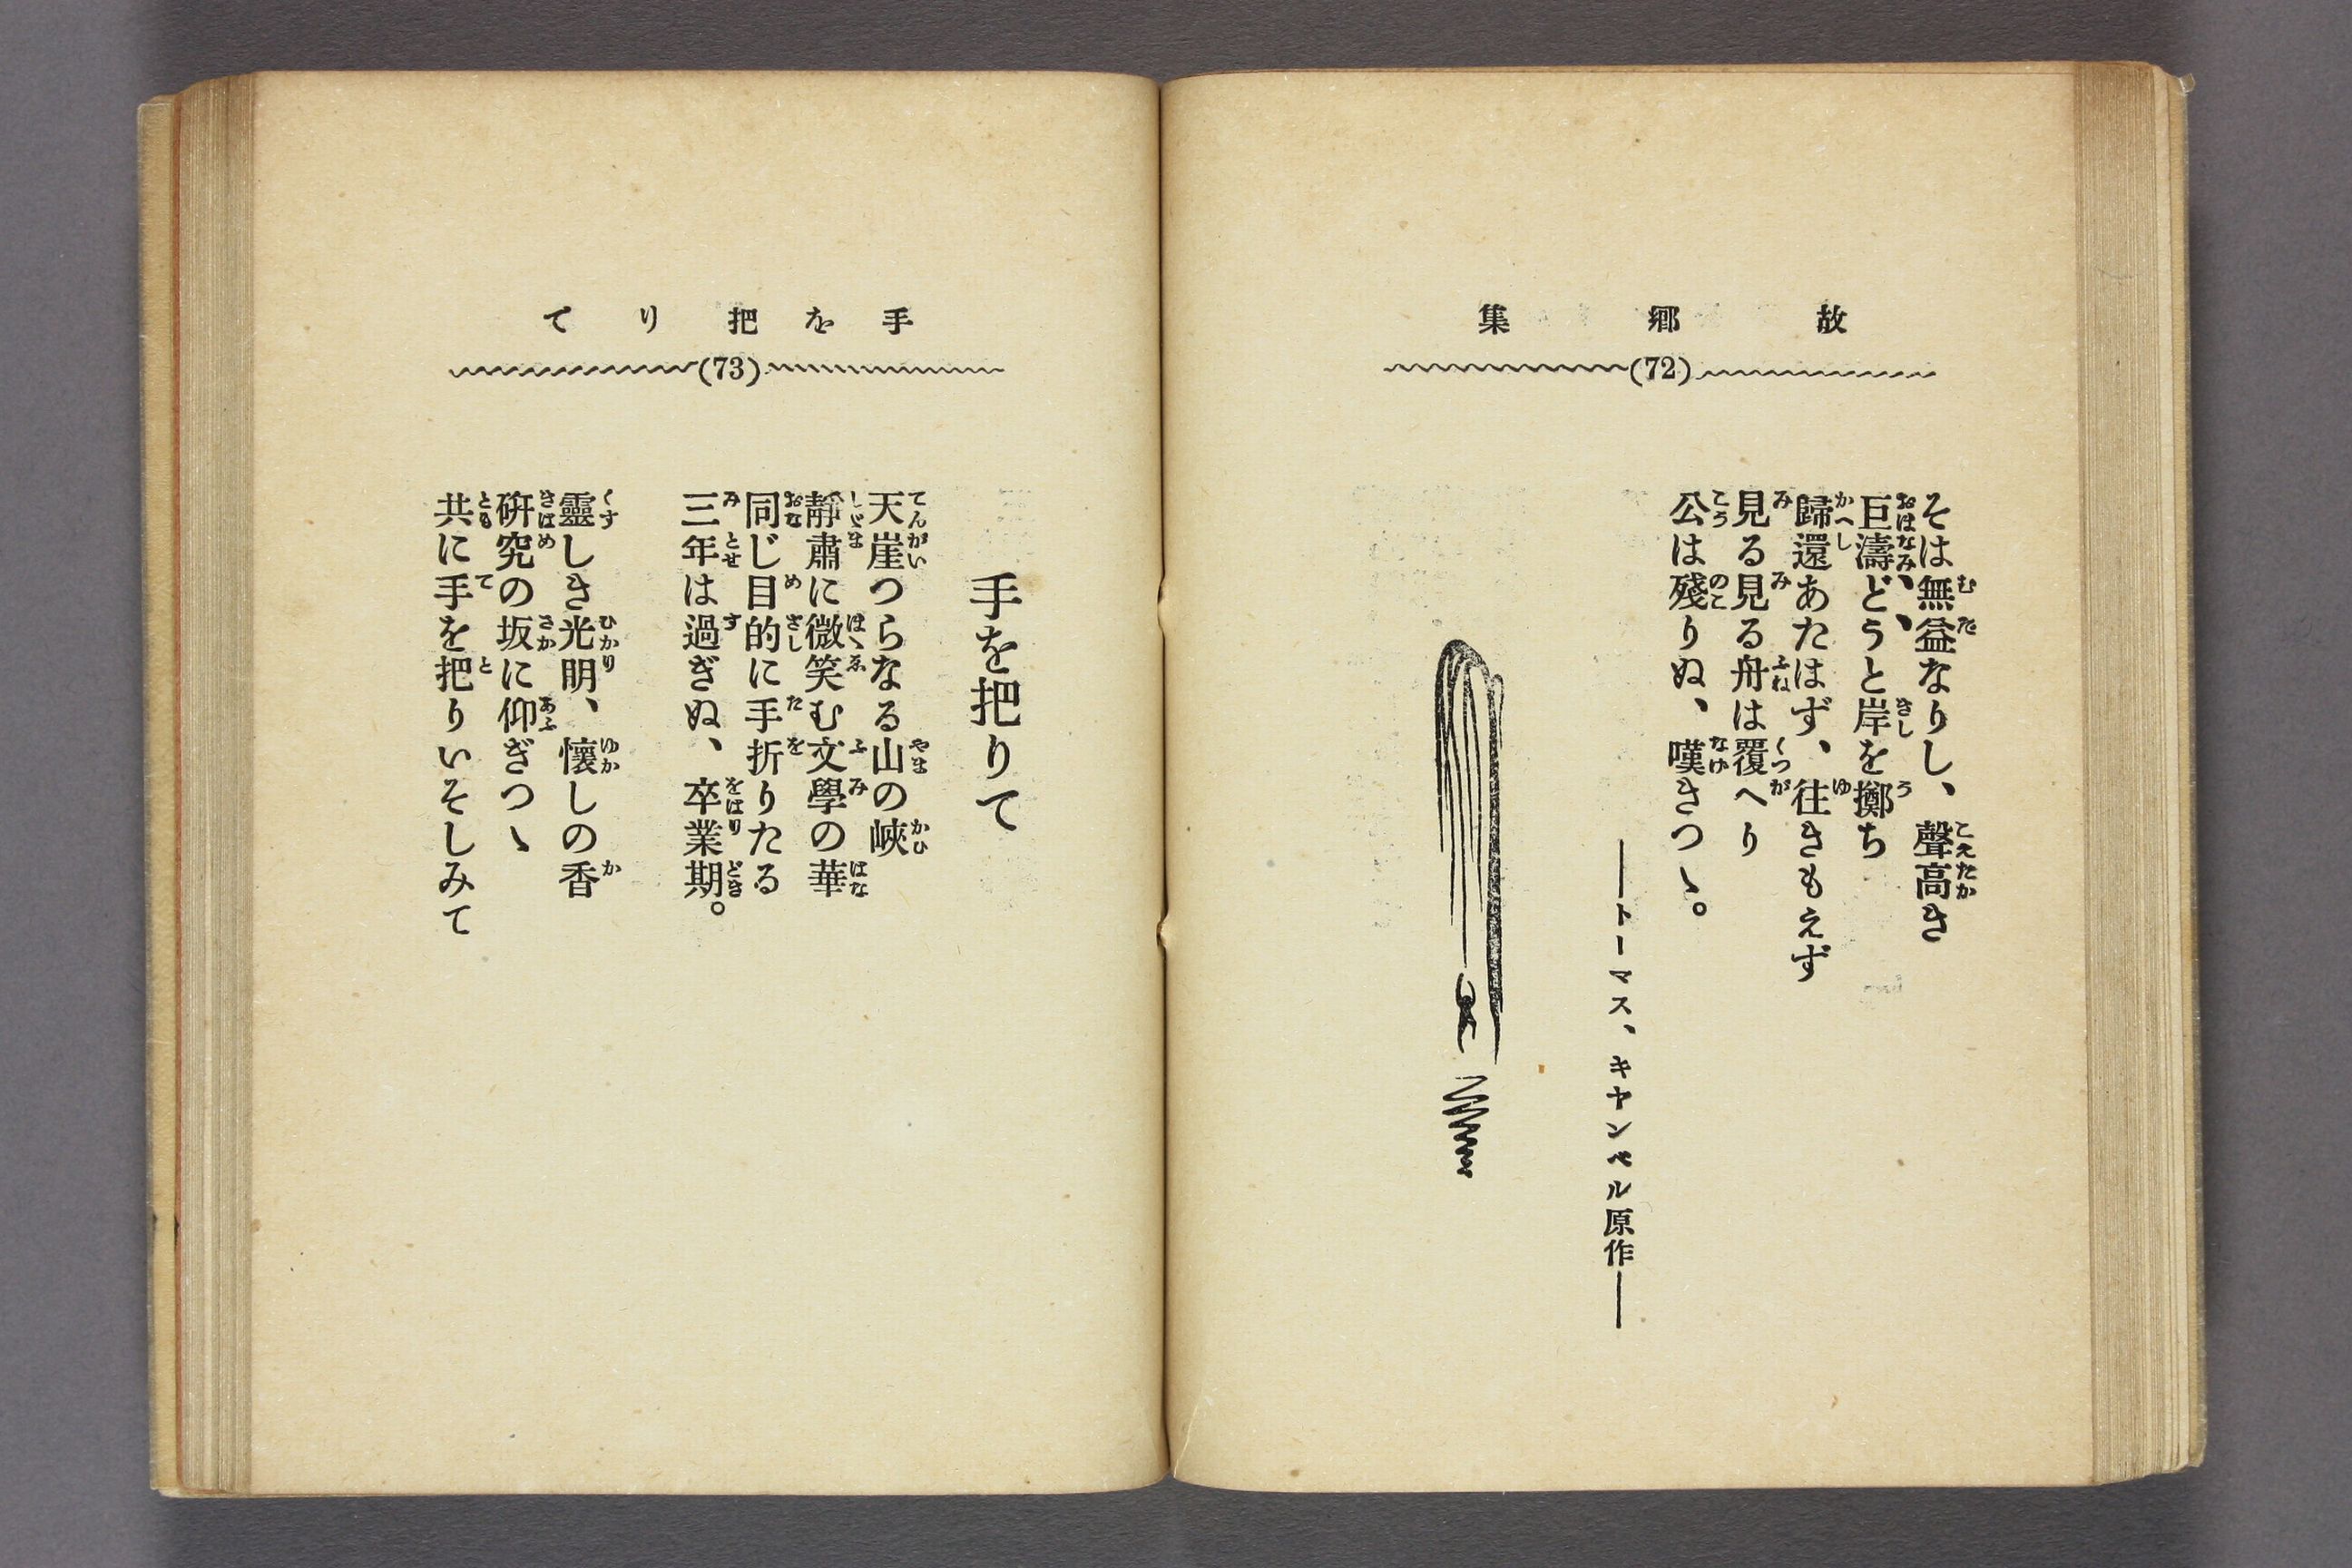 故郷集
(72)
そは無益なりし、聲高き
巨濤どうと岸を擲ち
歸還あたはず、往きもえず
見る見る舟は覆へり
公は殘りぬ、嘆きつゝ。
―トーマス、キヤンベル原作―
手を把りて
(73)
手を把りて
天崖つらなる山の峽
靜肅に微笑む文學の華
同じ目的に手折りたる
三年は過ぎぬ、卒業期。
靈しき光明、懷しの香
硏究の坂に仰ぎつゝ
共に手を把りいそしみて